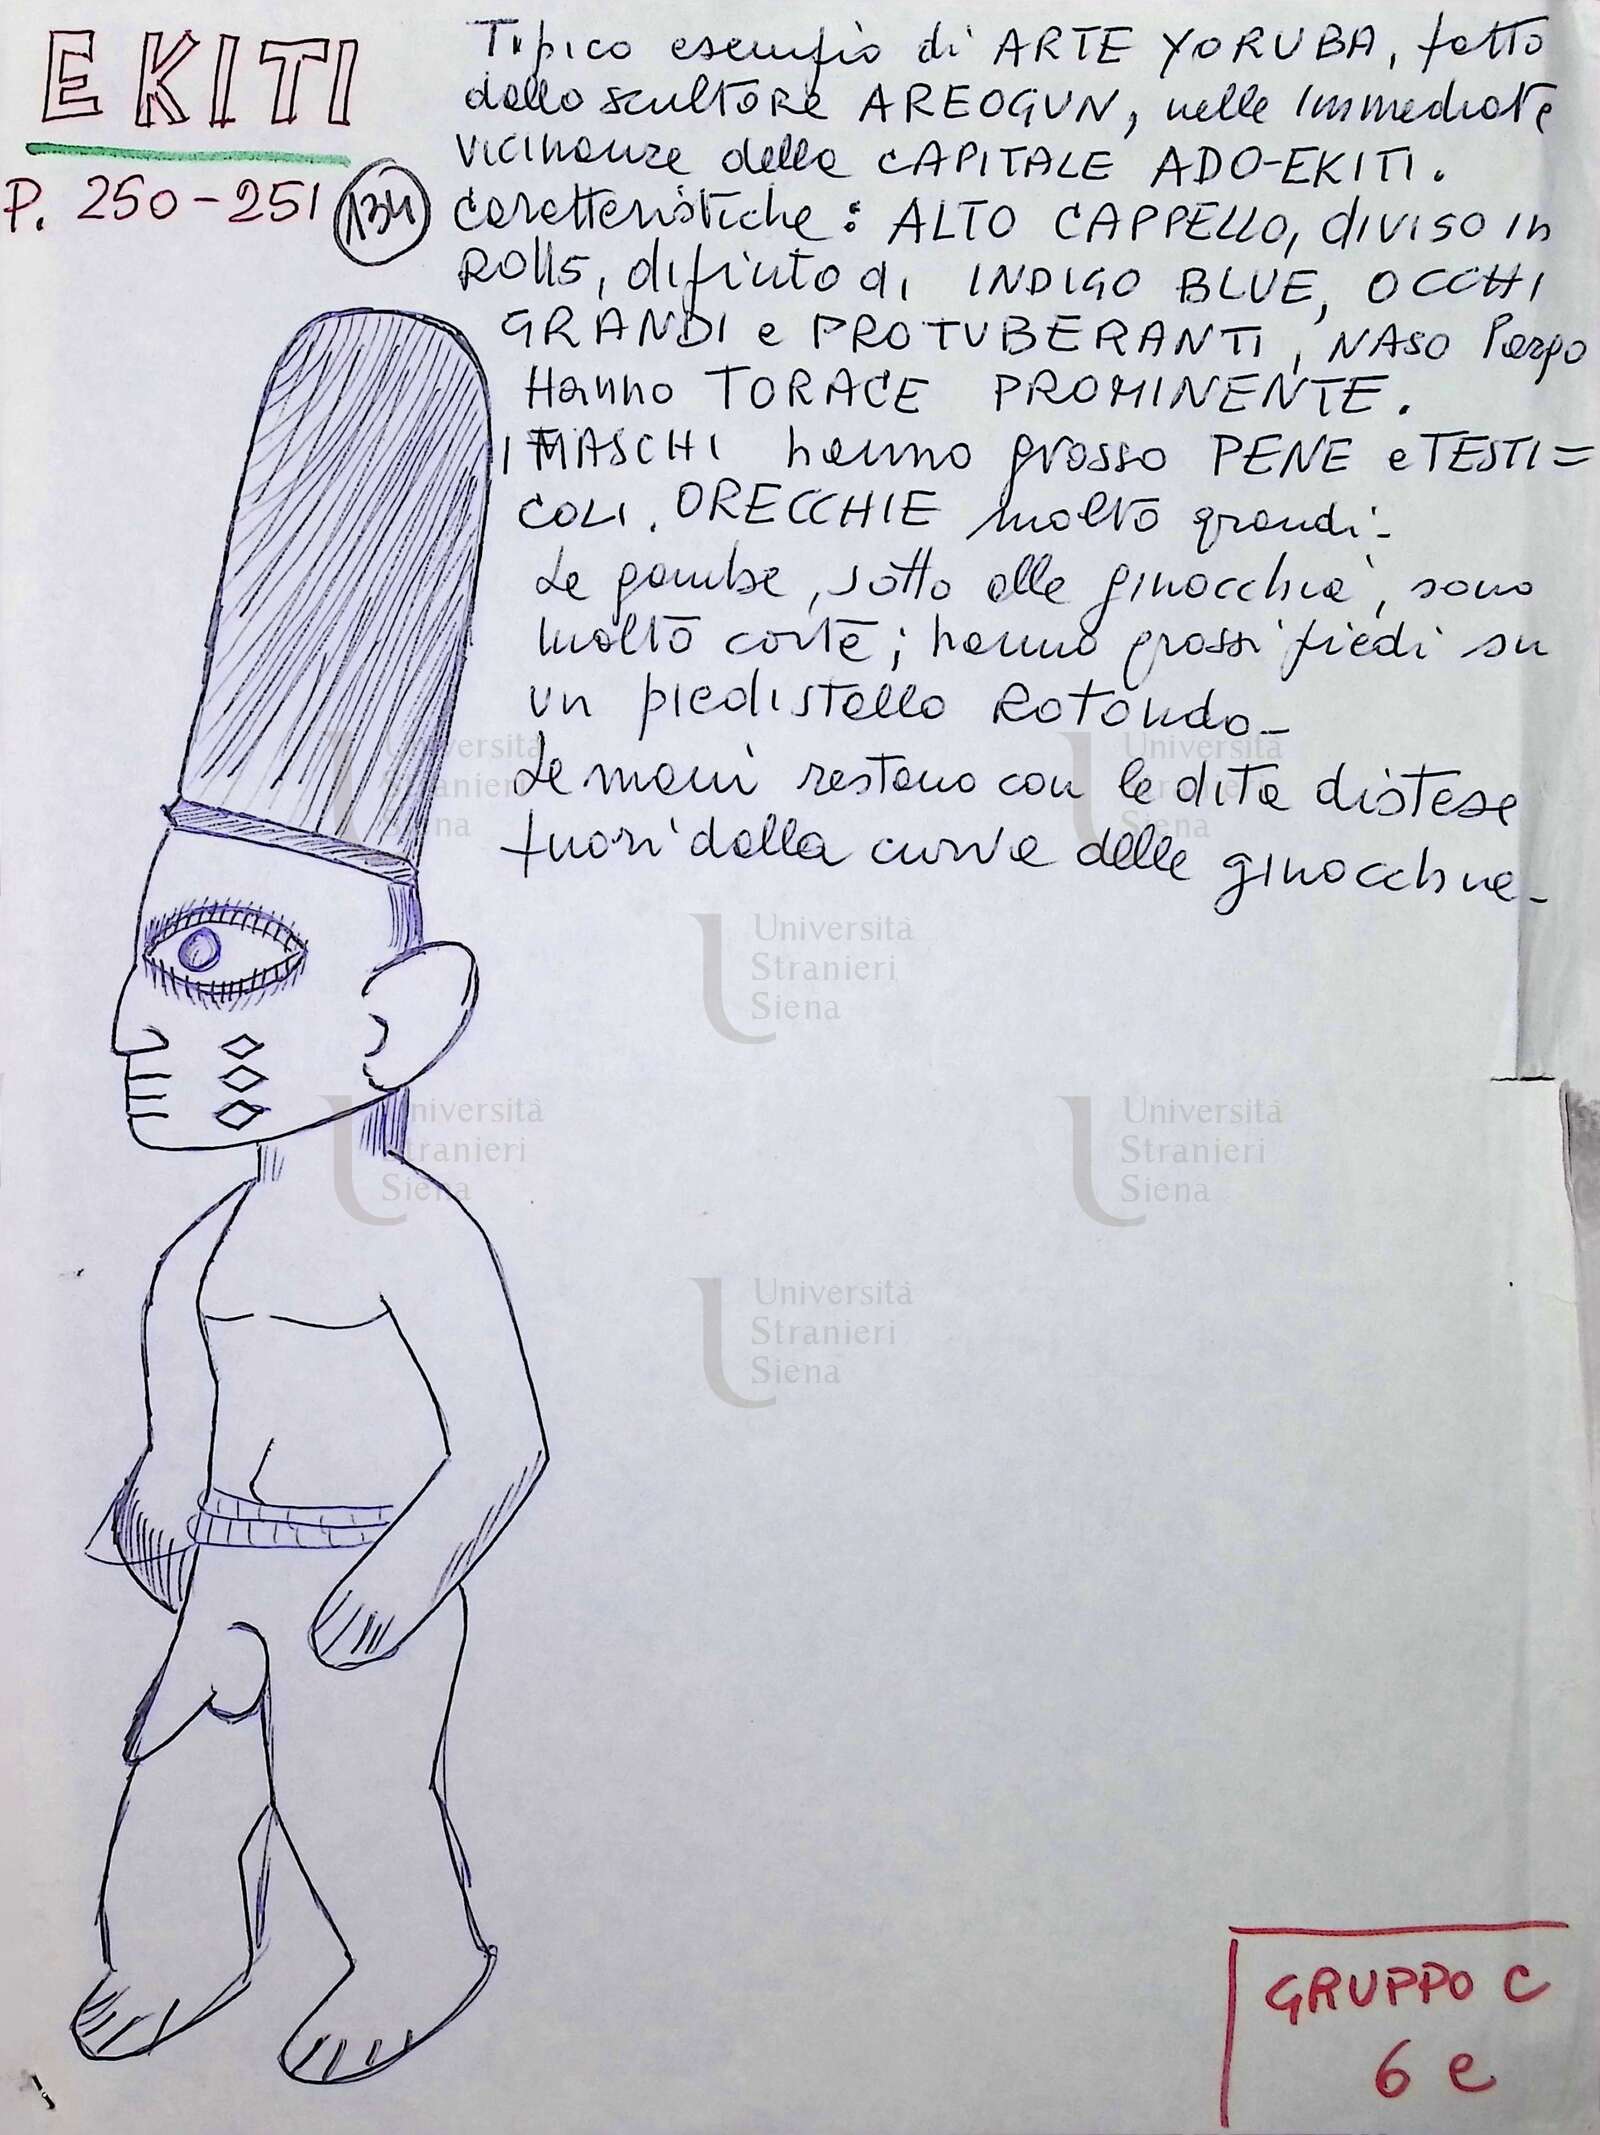 EKITI
P. 250-251 134
Tipico esempio di ARTE YORUBA, fatto
dallo scultore AREOGUN, nelle immediate
vicinanze della CAPITALE ADO-EKITI.
Caratteristiche: ALTO CAPPELLO, diviso in
ROLLS, dipinto di INDIGO BLUE, OCCHI
GRANDI e PROTUBERANTI, NASO largo
Hanno TORACE PROMINENTE.
I MASCHI hanno grosso PENE e TESTI=
COLI. ORECCHIE molto grandi-
Le gambe, sotto alle ginocchia, sono
molto corte; hanno grossi piedi su
un piedistallo ROTONDO-
Le mani restano con le dita distese
fuori dalla curva delle ginocchia-
Università
Stranieri
Siena
Università
Stranieri
Siena
Università
Stranieri
Siena
Università
Stranieri
Siena
Università
Stranieri
Siena
Università
Stranieri
Siena
GRUPPO C
6 e